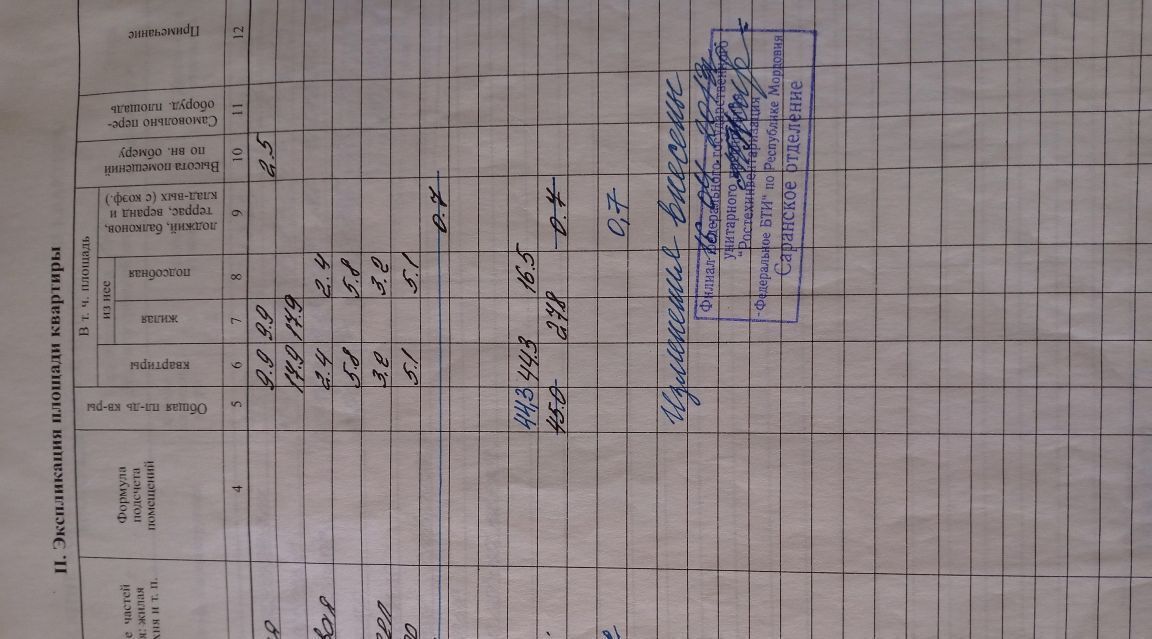 II. Экспликация площади квартиры
е частей
я: жилая
хня и т. п.
Формула
подсчета
помещений
Общая пл-дь кв-ры
В т. ч. площадь
из нее
квартиры
жилая
подсобная
лоджий, балконов,
террас, веранд и
клад-вых (с коэф.)
Высота помещений
по вн. обмеру
Самовольно пере-
оборуд. площадь
Примечание
4 5 6 7 8 9 10 11 12
9.9 9.9 2.5
17.9 17.9
2.4 2.4
5.8 5.8
3.2 3.2
5.1 5.1
0.7
44,3 44.3 16.5
45.0 27.8 0.7
0,7
Изменения внесены
Филиал Федерального государственного
унитарного предприятия
"Ростехинвентаризация
-Федеральное БТИ" по Республике Мордовия
Саранское отделение